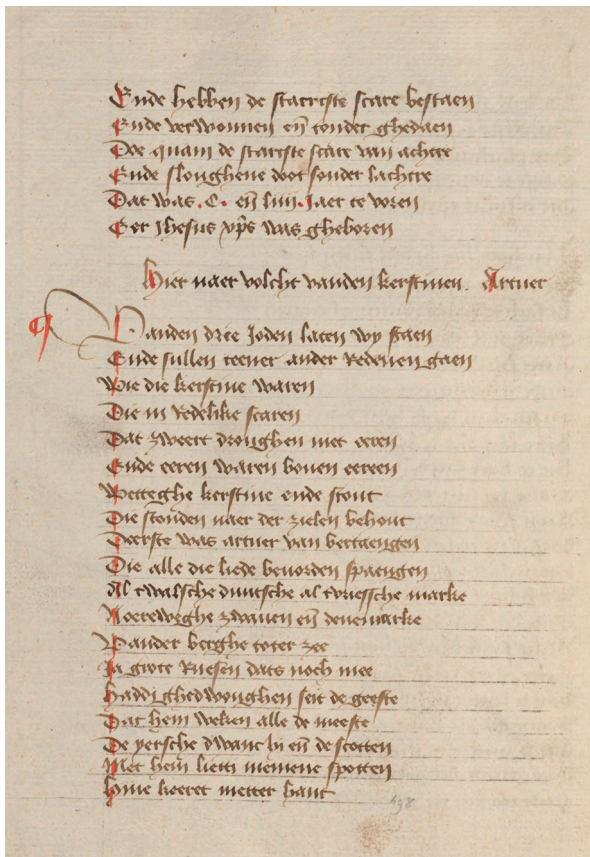 Ende hebben de staercste scare bestaen
Ende verwonnen eñ tonder ghedaen
Doe quam de starcste scare van achtre
Ende slougene doot sonder lachtre
Dat was .C. eñ liiij. Jaer te voren
Eer Jhesus xp̄s was gheboren
Hier naer volcht vanden kerstinen. Artuer
Vanden drie Joden laten wy staen
Ende sullen teener ander Redenen gaen
Wie die kerstine waren
Die in Redelike scaren
Dat zweert droughen met eeren
Ende eeren waren bouen eereen
Wetteghe kerstine ende stout
Die stonden naer der zielen behout
Deerste was artuer van bertaengen
Die alle die liede beuorden spaengen
Al twalsche duutsche al tvriessche marke
Noereweghe zwauen eñ denemarke
Vander berghe toter zee
Ja grote Ruesen dats noch mee
Haddi ghedwonghen seit de geeste
Dat hem weken alle de meeste
De persche dwanc hi eñ de scotten
Met hem lietti niemene spotten
Hine keeret metter hant